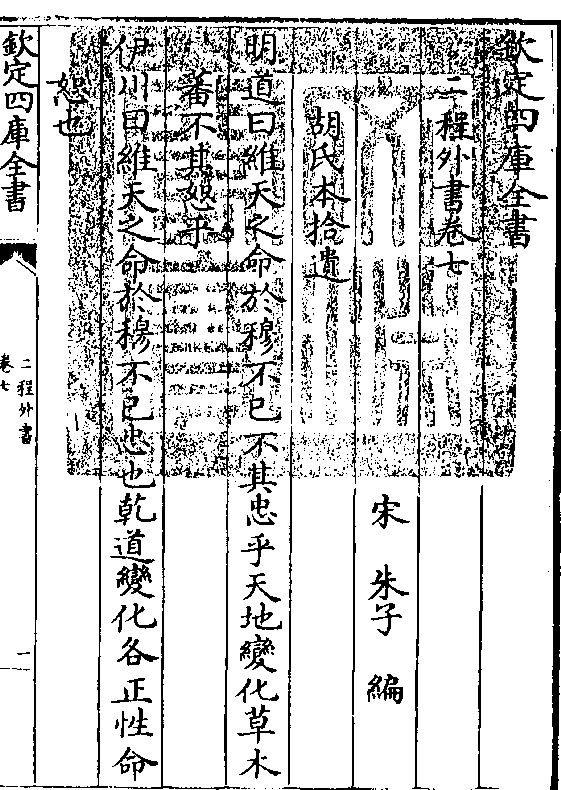 欽定四庫全書
二程外書卷七
宋 朱子 編
胡氏本拾遺
明道曰維天之命於穆不已不其忠乎天地變化草木
蕃不其恕乎
伊川曰維天之命於穆不已忠也乾道變化各正性命
恕也
欽定四庫全書
二程外書
卷七
一